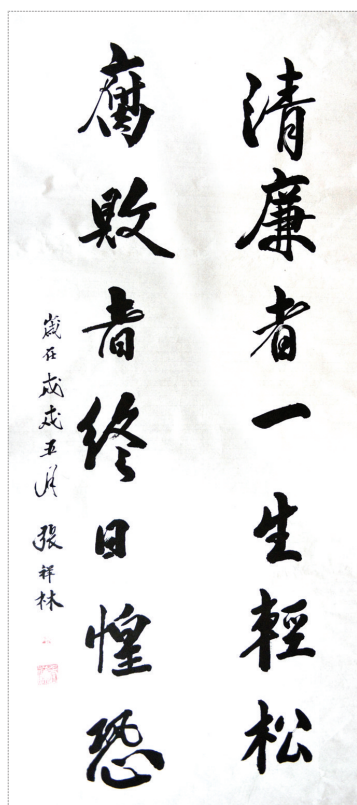 清廉者一生輕松
腐敗者終日惶恐
歲在戊戌五月 張祥林